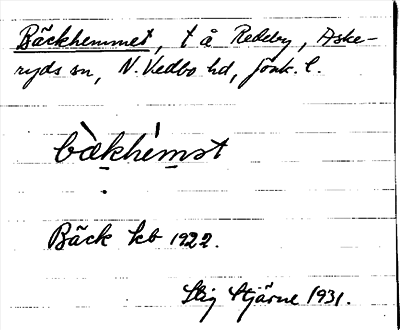 Bäckhemmet, t å Redeby, Aske-
ryds sn, N. Vedbo hd, Jönk. l.
bàkhémst
Bäck kb 1922.
Stig Stjärne 1931.